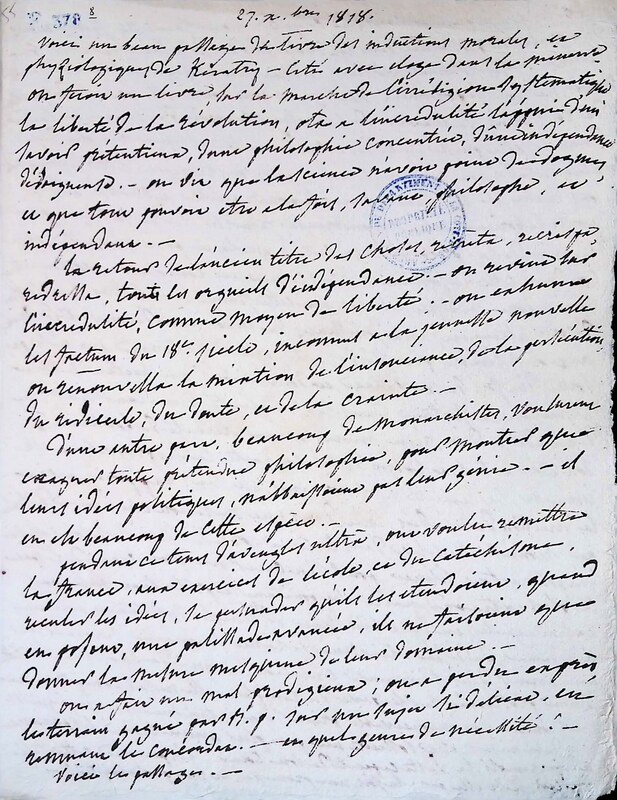 N° 378 8
27. x.bre 1818.
Voici un beau passage du livre des inductions morales, et
physiologiques de Kératry – Cité avec éloge dans la minerve
on feroit un livre, sur la marche de l'irréligion systématique
la liberté de la révolution, ota a l'incrédulité l'appui d'un
savoir prétentieux, d'une philosophie concentrée, d'une indépendance
– on vit que la science n'avoit point de dogmes
et que tout pouvoit etre a la fois, savant, philosophe, et
indépendant. –
Le retour de l'ancien titre des choses,
toutes les orgueils d'indépendance – on revint sur
l'incrédulité, comme moyen de liberté; – on exhuma
les factum du 18e siecle, inconnus a la jeunesse nouvelle
on renouvella la mention de l'insouciance, de la persécution,
du ridicule, du doute, et de la crainte –
D'une autre part, beaucoup de monarchistes, voulurent
toute prétendue philosophie, pour montrer que
leurs idées politiques, n'abbaissoient pas leur génie. – il
en est beaucoup de cette espèce. –
pendant ce tems d'aveugles ultra, ont voulu remettre
la france, aux exercices de l'école, et du catéchisme,
reculer les idées, se persuader qu'ils les etendoient, quand
en posant, une palissade avancée, ils ne faisoient que
donner la mesure mesquine de leur domaine. –
on a fait un mal prodigieux; on a perdu exprès
le terrain gagné par B. p. sur un sujet si délicat, en
remuant le concordat. – en quel genre de nécessité! –
Voici les passages. –
PROPRIÉTÉ PUBLIQUE